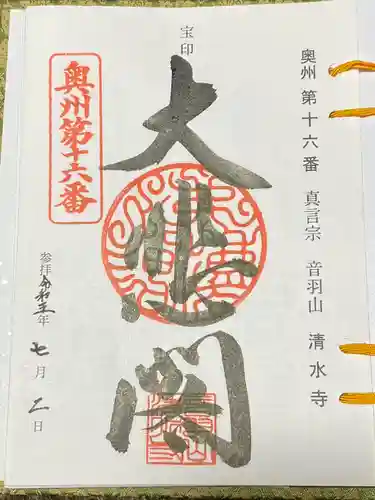 奥州 第十六番 真言宗 音羽山 清水寺
宝印
大悲閣
奥州第十六番
参拝 令和五年
七月二日